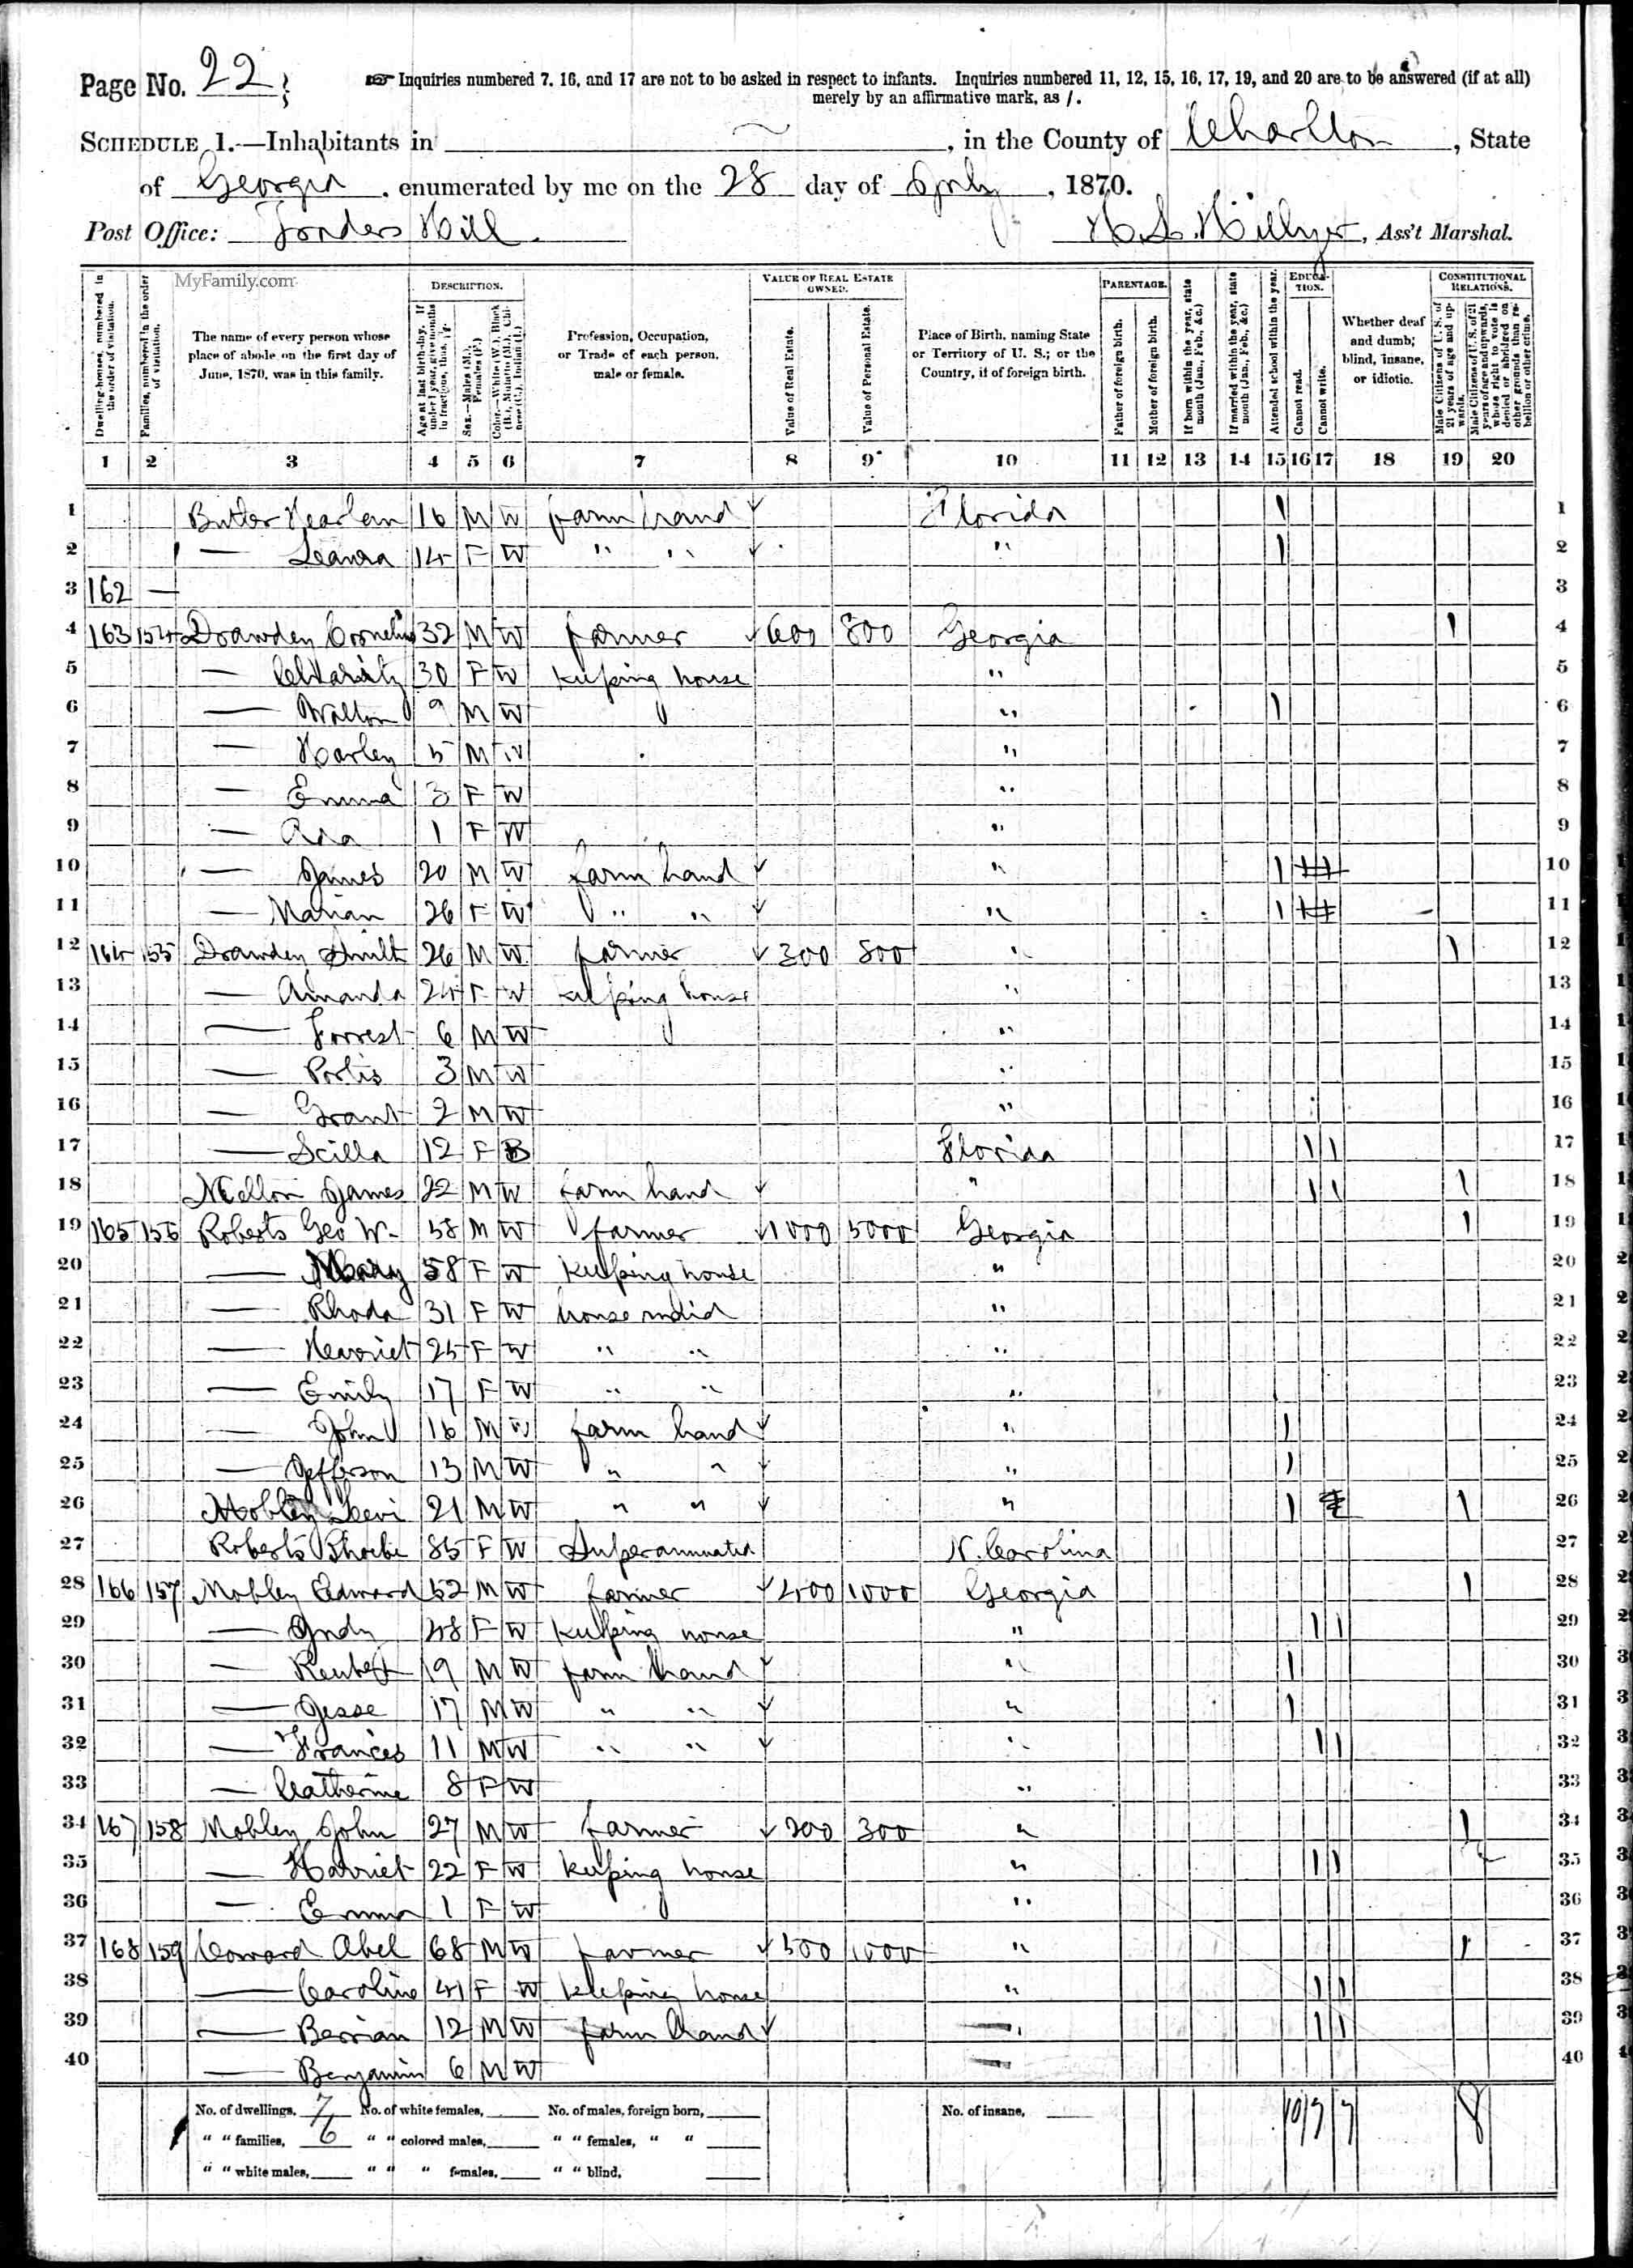 Page No. 22
☞ Inquiries numbered 7, 16, and 17 are not to be asked in respect to infants. Inquiries numbered 11, 12, 15, 16, 17, 19, and 20 are to be answered (if at all)
merely by an affirmative mark, as /.
SCHEDULE 1.—Inhabitants in , in the County of Charlton, State
of Georgia, enumerated by me on the 28 day of July, 1870.
Post Office: Traders Hill. Hillyer, Ass't Marshal.
MyFamily.com
Dwelling-houses, numbered in the order of visitation.
Families, numbered in the order of visitation.
The name of every person whose place of abode on the first day of June, 1870, was in this family.
DESCRIPTION.
Age at last birth-day. If under 1 year, give months in fractions, thus,
Sex.—Males (M.), Females (F.)
Color.—White (W.), Black (B.), Mulatto (M.), Chinese (C.), Indian (I.)
Profession, Occupation, or Trade of each person, male or female.
VALUE OF REAL ESTATE OWNED.
Value of Real Estate.
Value of Personal Estate.
Place of Birth, naming State or Territory of U. S.; or the Country, if of foreign birth.
PARENTAGE.
Father of foreign birth.
Mother of foreign birth.
If born within the year, state month (Jan., Feb., &c.)
If married within the year, state month (Jan., Feb., &c.)
Attended school within the year.
EDUCATION.
Cannot read.
Cannot write.
Whether deaf and dumb, blind, insane, or idiotic.
CONSTITUTIONAL RELATIONS.
Male Citizens of U. S. of 21 years of age and upwards.
Male Citizens of U. S. of 21 years of age and upwards, whose right to vote is denied or abridged on other grounds than rebellion or other crime.
1 2 3 4 5 6 7 8 9 10 11 12 13 14 15 16 17 18 19 20
1 Butler 16 M W farm hand Florida / 1
2 — Leaura 14 F W " " " / 2
3 162 — 3
4 163 154 Drawdey Cornelius 32 M W farmer 600 800 Georgia / 4
5 — Charity 30 F W keeping house " 5
6 — Walton 9 M W " / 6
7 — Harley 5 M W " 7
8 — Emma 3 F W " 8
9 — Ada 1 F W " 9
10 — James 20 M W farm hand " / 10
11 — Marian 26 F W " " " / 11
12 164 155 Drawdey 26 M W farmer 300 800 " / 12
13 — Amanda 24 F W keeping house " 13
14 — Forrest 6 M W " 14
15 — Portis 3 M W " 15
16 — Grant 2 M W " 16
17 — Scilla 12 F B Florida / / 17
18 Mellon James 22 M W farm hand " / / / 18
19 165 156 Roberts Geo W. 58 M W farmer 1000 5000 Georgia / 19
20 — Mary 58 F W keeping house " 20
21 — Rhoda 31 F W house maid " 21
22 — Harriet 25 F W " " " 22
23 — Emily 17 F W " " " 23
24 — John 16 M W farm hand " / 24
25 — Jefferson 13 M W " " " / 25
26 Mobley Levi 21 M W " " " / / 26
27 Roberts Phoebe 85 F W Superannuated N. Carolina 27
28 166 157 Mobley Edward 52 M W farmer 400 1000 Georgia / 28
29 — Judy 48 F W keeping house " / / 29
30 — 19 M W farm hand " / 30
31 — Jesse 17 M W " " " / 31
32 — Frances 11 M W " " " / / 32
33 — Catherine 8 F W " 33
34 167 158 Mobley John 27 M W farmer 200 300 " / 34
35 — Harriet 22 F W keeping house " / / 35
36 — Emma 1 F W " 36
37 168 159 Coward Abel 68 M W farmer 500 1000 " / 37
38 — Caroline 41 F W keeping house " / / 38
39 — Berrian 12 M W farm hand " / / 39
40 — Benjamin 6 M W 40
No. of dwellings, 7 No. of white females, No. of males, foreign born, No. of insane, 10 7 7 8
" " families, 6 " " colored males, " " females, " "
" " white males, " " " females, " " blind,